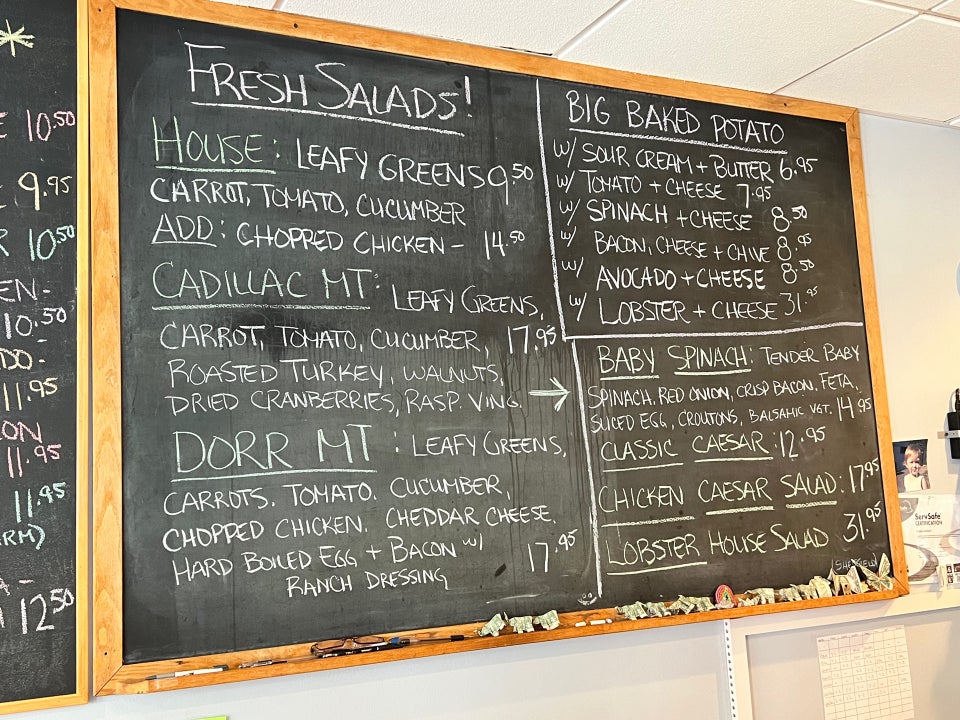 *
10.50
9.95
10.50
EN-
10.50
DO-
11.95
ON
11.95
11.95
RM)
12.50
FRESH SALADS!
HOUSE: LEAFY GREENS 9.50
CARROT, TOMATO, CUCUMBER
ADD: CHOPPED CHICKEN - 14.50
CADILLAC MT: LEAFY GREENS,
CARROT, TOMATO, CUCUMBER, 17.95
ROASTED TURKEY, WALNUTS,
DRIED CRANBERRIES, RASP. VING.
DORR MT: LEAFY GREENS,
CARROTS. TOMATO. CUCUMBER,
CHOPPED CHICKEN. CHEDDAR CHEESE.
HARD BOILED EGG + BACON w/ 17.95
RANCH DRESSING
BIG BAKED POTATO
w/ SOUR CREAM + BUTTER 6.95
w/ TOMATO + CHEESE 7.95
w/ SPINACH + CHEESE 8.50
w/ BACON, CHEESE + CHIVE 8.95
w/ AVOCADO + CHEESE 8.50
w/ LOBSTER + CHEESE 31.95
→ BABY SPINACH: TENDER BABY
SPINACH, RED ONION, CRISP BACON, FETA,
SLICED EGG, CROUTONS, BALSAMIC VGT. 14.95
CLASSIC CAESAR: 12.95
CHICKEN CAESAR SALAD: 17.95
LOBSTER HOUSE SALAD 31.95
ServSafe
CERTIFICATION